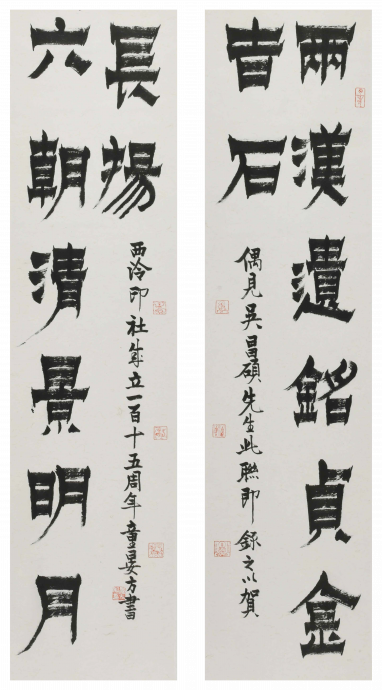 兩漢遺銘貞金
吉石
偶見吳昌碩先生此聯即錄之以賀
六朝清景明月
長揚
西泠印社成立一百十五周年童晏方書